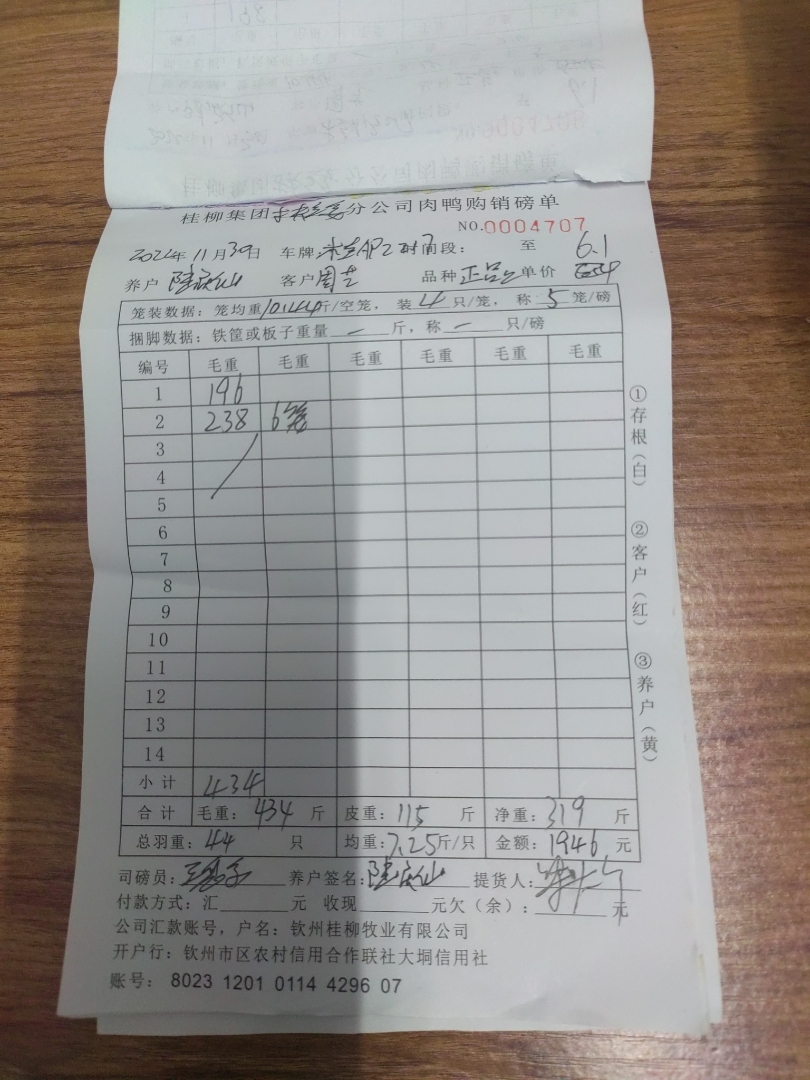 桂柳集团 分公司肉鸭购销磅单
NO.0004707
11月30日 车牌: 时间段: 至 6.1
养户 客户 品种 正品 单价
笼装数据: 笼均重 10.44 斤/空笼, 装 4 只/笼, 称 5 笼/磅
捆脚数据: 铁筐或板子重量 — 斤, 称 — 只/磅
编号 毛重 毛重 毛重 毛重 毛重 毛重
1 196
2 238 6笼
3
4
5
6
7
8
9
10
11
12
13
14
小计 434
合计 毛重: 434 斤 皮重: 115 斤 净重: 319 斤
总羽重: 44 只 均重: 7.25 斤/只 金额: 1946 元
司磅员: 养户签名: 提货人:
付款方式: 汇 元 收现 元 欠(余): 元
公司汇款账号, 户名: 钦州桂柳牧业有限公司
开户行: 钦州市区农村信用合作联社大垌信用社
账号: 8023 1201 0114 4296 07
①存根(白)
②客户(红)
③养户(黄)